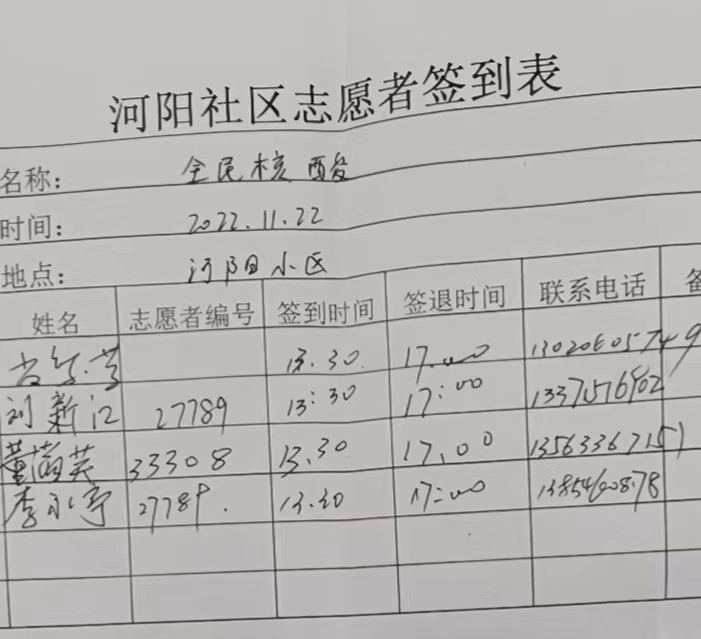 河阳社区志愿者签到表
名称： 全民核酸
时间： 2022.11.22
地点： 河阳小区
姓名 志愿者编号 签到时间 签退时间 联系电话 备
13.30 17.00 13020605749
刘新江 27789 13:30 17:00
董萌芙 33308 13.30 17.00 13563367151
李永亭 27789. 13.30 17:00